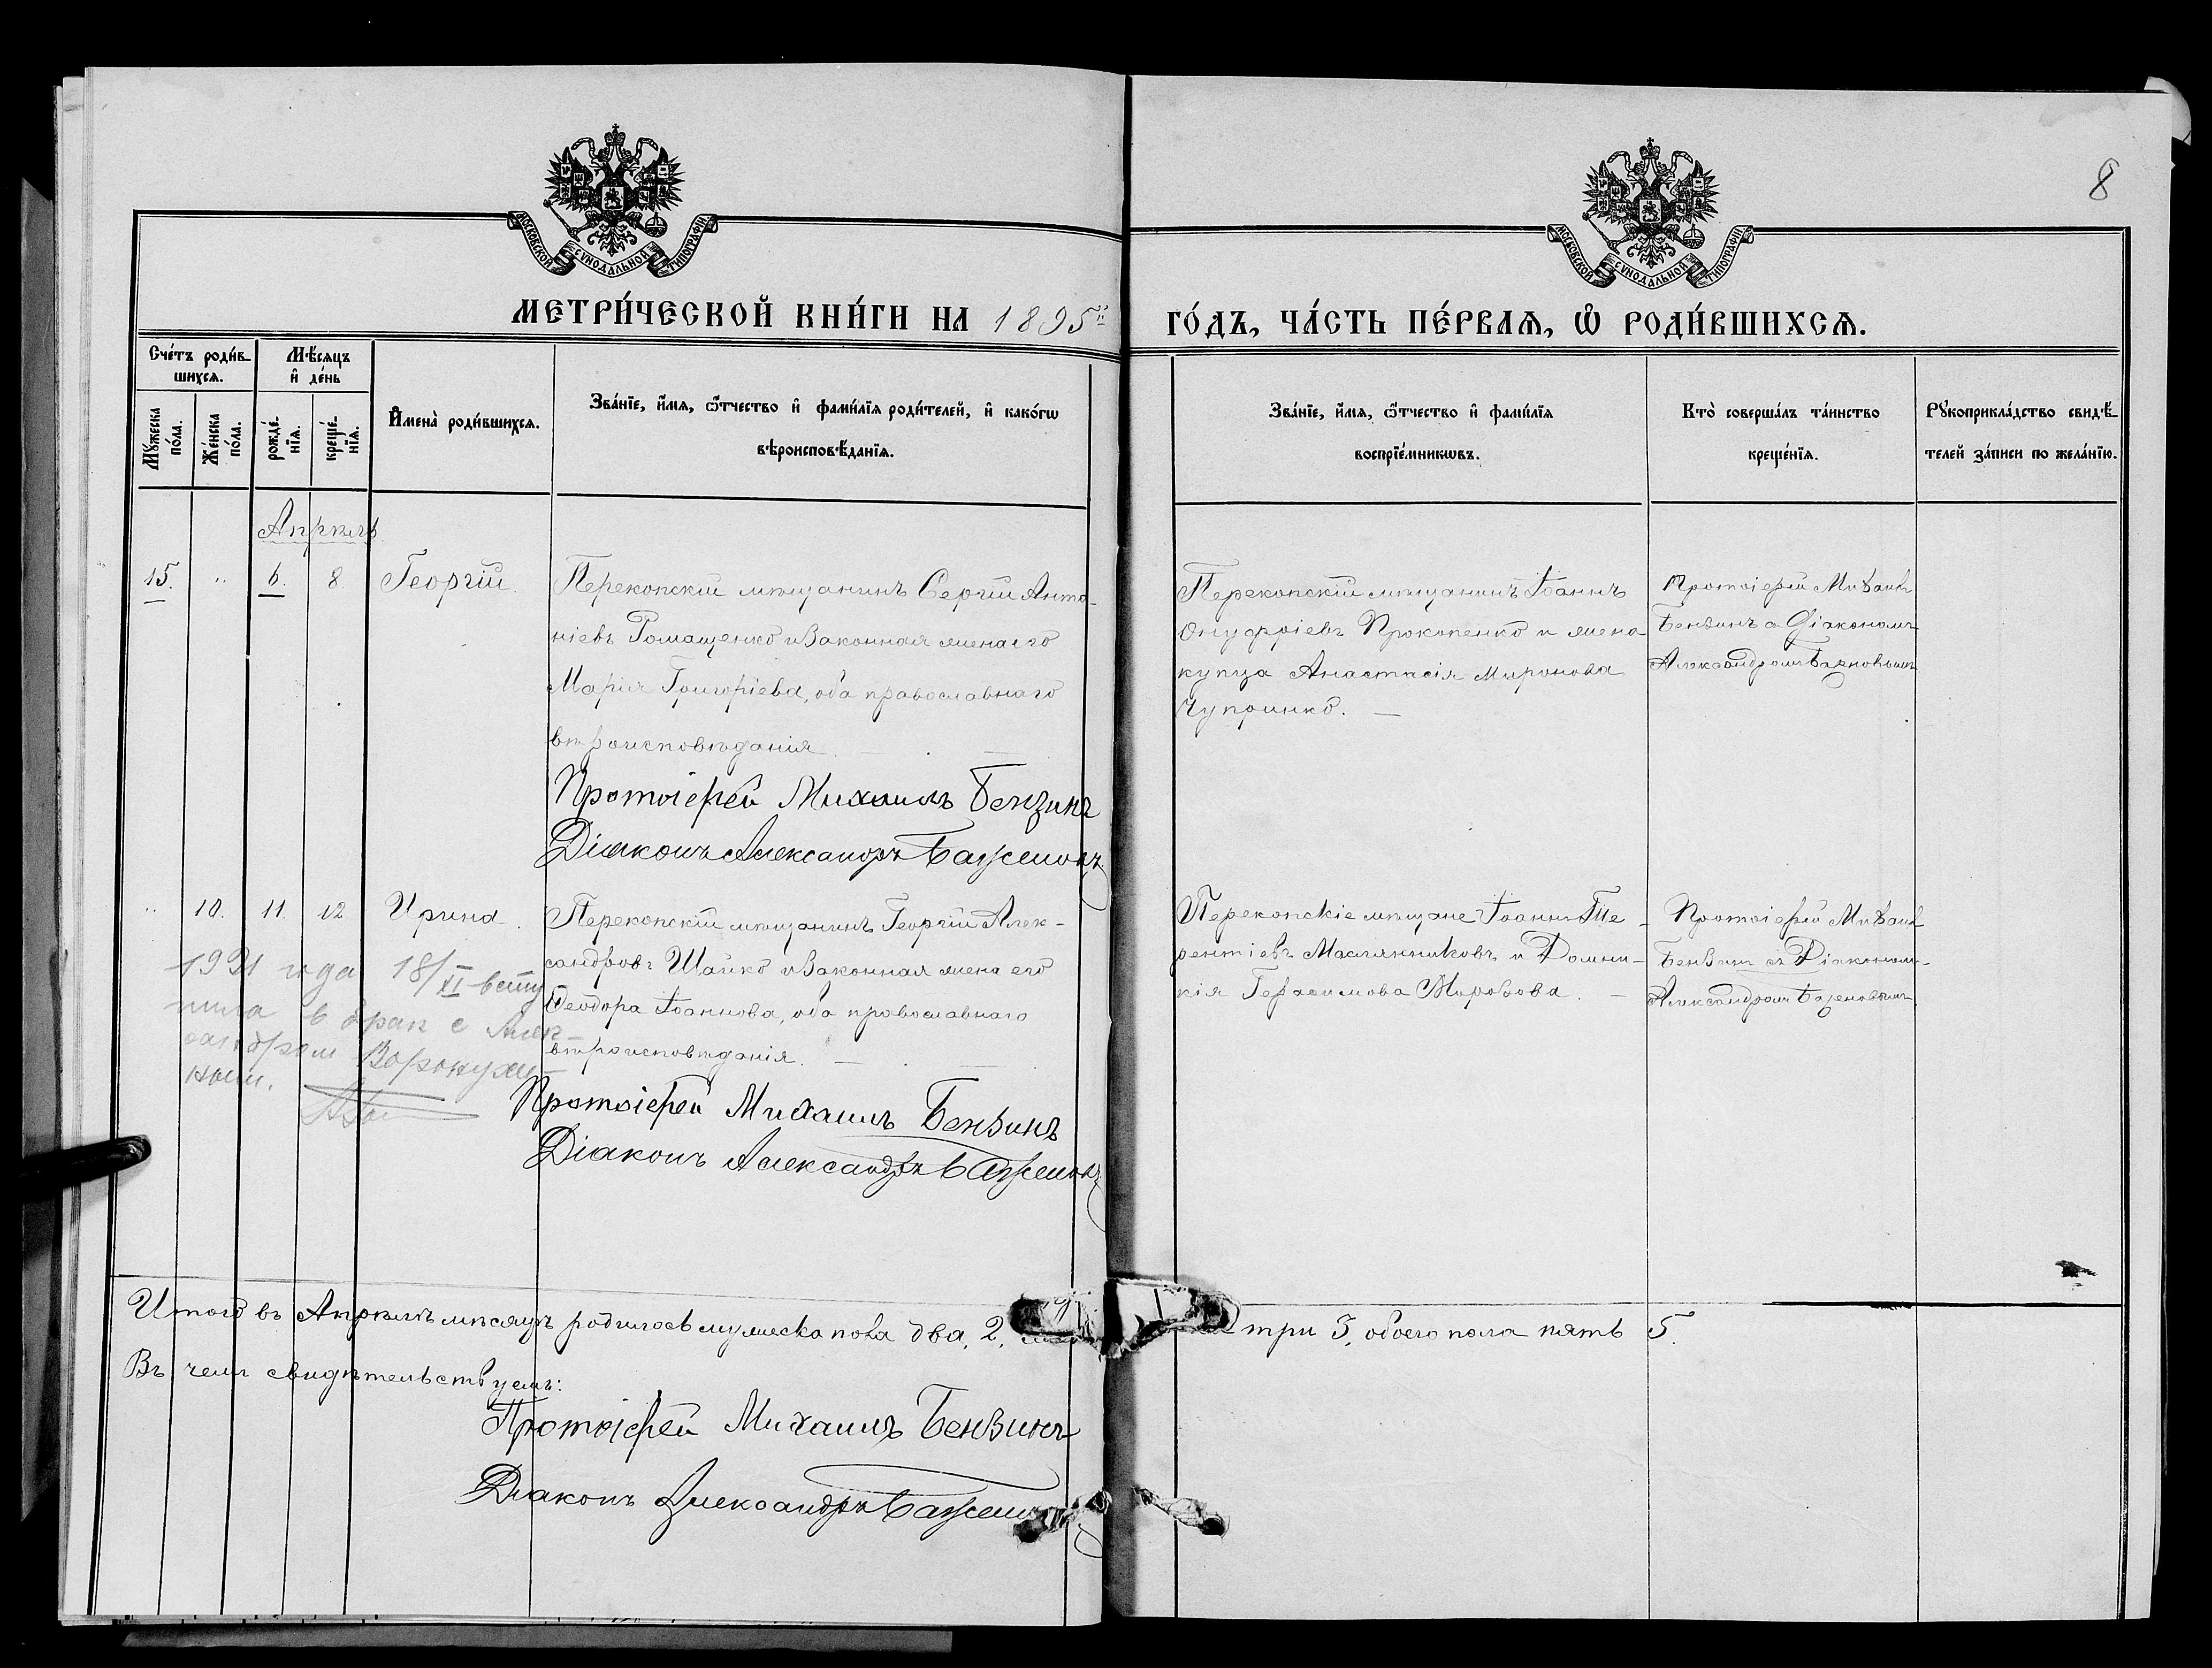 8
МОСКОВСКОЙ СѴНОДАЛЬНОЙ ТИПОГРАФІИ
МОСКОВСКОЙ СѴНОДАЛЬНОЙ ТИПОГРАФІИ
МЕТРИ́ЧЕСКОЙ КНИ́ГИ НА 1895й
ГО́ДЪ, ЧА́СТЬ ПЕ́РВАѦ, Ѡ҆ РОДИ́ВШИХСѦ.
Сче́тъ роди́в-
шихсѧ.
Мѣ́сѧцъ
и҆ де́нь
Мꙋ́жеска по́ла.
Же́нска по́ла.
рожде́нїѧ.
креще́нїѧ.
И҆мена̀ роди́вшихсѧ.
Зва́нїе, и҆́мѧ, ѻ҆́тчество и҆ фами́лїѧ роди́телей, и҆ како́гѡ
вѣроисповѣ́данїѧ.
Зва́нїе, и҆́мѧ, ѻ҆́тчество и҆ фами́лїѧ
воспрїе́мникѡвъ.
Кто̀ соверша́лъ та́инство
креще́нїѧ.
Рꙋкоприкла́дство свидѣ́-
телей за́писи по жела́нїю.
Апрѣль
15. „ 6. 8 Георгій.
Перекопскій мѣщанинъ Сергій Анто-
ніевъ Ромащенко и законная жена его
Марія Григоріева, оба православнаго
вѣроисповѣданія.
Протоіерей Михаилъ Бензинъ
Діаконъ Александръ Баженовъ
Перекопскій мѣщанинъ Іоаннъ
Онуфріевъ Прокопенко и жена
купца Анастасія Миронова
Чупринко. —
Протоіерей Михаилъ
Бензинъ с Діакономъ
Александромъ Баженовымъ
„ 10. 11. 12 Ирина.
Перекопскій мѣщанинъ Георгій Алек-
сандровъ Шайко и законная жена его
Ѳеодора Іоаннова, оба православнаго
вѣроисповѣданія. —
Протоіерей Михаилъ Бензинъ
Діаконъ Александръ Баженовъ
1921 года 18/XI всту
пила в брак с Алек-
сандром
ным.
Перекопскіе мѣщане Іоаннъ Те-
рентіевъ Маслянниковъ и Домни-
кія Герасимова Морозова. —
Протоіерей Михаилъ
Бензинъ съ Діакономъ
Александромъ Баженовымъ
Итого въ Апрѣлѣ мѣсяцѣ родилось мужеска пола два, 2, три 3, обоего пола пять 5.
Въ чемъ свидѣтельствуемъ:
Протоіерей Михаилъ Бензинъ
Діаконъ Александръ Баженовъ